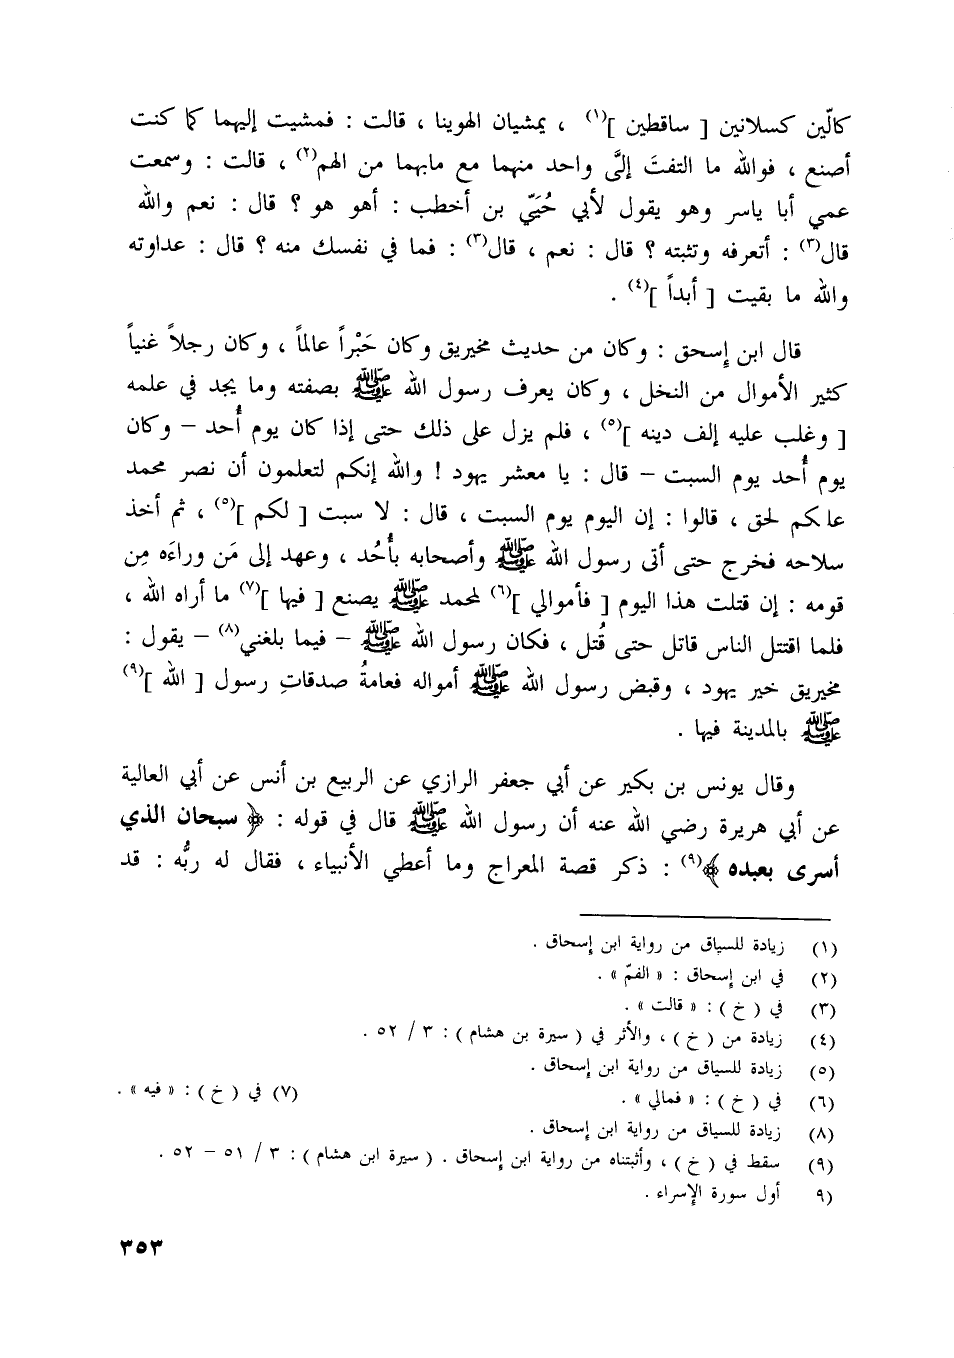 كالّين كسلانين [ ساقطين ](١) ، يمشيان الهوينا ، قالت : فمشيت إليهما كما كنت
أصنع ، فوالله ما التفتَ إلىَّ واحد منهما مع مابهما من الهم(٢) ، قالت : وسمعت
عمي أبا ياسر وهو يقول لأبي حُيَيّ بن أخطب : أهو هو ؟ قال : نعم والله
قال(٣) : أتعرفه وتثبته ؟ قال : نعم ، قال(٣) : فما في نفسك منه ؟ قال : عداوته
والله ما بقيت [ أبداً ](٤) .
قال ابن إسحق : وكان من حديث مخيريق وكان حَبْراً عالماً ، وكان رجلاً غنياً
كثير الأموال من النخل ، وكان يعرف رسول الله ﷺ بصفته وما يجد في علمه
[ وغلب عليه إلف دينه ](٥) ، فلم يزل على ذلك حتى إذا كان يوم أُحد – وكان
يوم أُحد يوم السبت – قال : يا معشر يهود ! والله إنكم لتعلمون أن نصر محمد
عليكم لحق ، قالوا : إن اليوم يوم السبت ، قال : لا سبت [ لكم ](٥) ، ثم أخذ
سلاحه فخرج حتى أتى رسول الله ﷺ وأصحابه بأُحُد ، وعهد إلى مَن وراءَه مِن
قومه : إن قتلت هذا اليوم [ فأموالي ](٦) لمحمد ﷺ يصنع [ فيها ](٧) ما أراه الله ،
فلما اقتتل الناس قاتل حتى قُتل ، فكان رسول الله ﷺ – فيما بلغني(٨) – يقول :
مخيريق خير يهود ، وقبض رسول الله ﷺ أمواله فعامةُ صدقاتِ رسول [ الله ](٩)
ﷺ بالمدينة فيها .
وقال يونس بن بكير عن أبي جعفر الرازي عن الربيع بن أنس عن أبي العالية
عن أبي هريرة رضي الله عنه أن رسول الله ﷺ قال في قوله : ﴿ سبحان الذي
أسرى بعبده ﴾(٩) : ذكر قصة المعراج وما أعطي الأنبياء ، فقال له ربُّه : قد
(١) زيادة للسياق من رواية ابن إسحاق .
(٢) في ابن إسحاق : « الغمّ » .
(٣) في ( خ ) : « قالت » .
(٤) زيادة من ( خ ) ، والأثر في ( سيرة بن هشام ) : ٣ / ٥٢ .
(٥) زيادة للسياق من رواية ابن إسحاق .
(٦) في ( خ ) : « فمالي » . (٧) في ( خ ) : « فيه » .
(٨) زيادة للسياق من رواية ابن إسحاق .
(٩) سقط في ( خ ) ، وأثبتناه من رواية ابن إسحاق . ( سيرة ابن هشام ) : ٣ / ٥١ – ٥٢ .
٩) أول سورة الإسراء .
٣٥٣